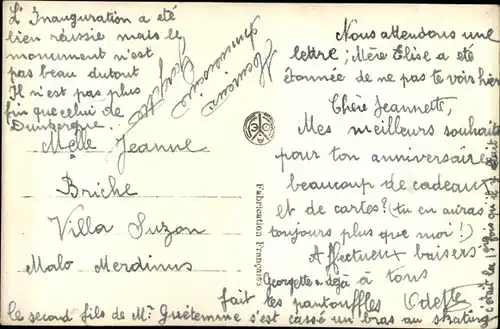 L'Inauguration a été
bien réussie mais le
monument n'est
pas beau dutout
Il n'est pas plus
fin que celui de
Dunkerque.
Heureux
Anniversaire
Melle Jeanne
Briche
Villa Suzon
Malo Merdinus
Fabrication Française
Nous attendons une
lettre ; Mère Elise a été
étonnée de ne pas te voir hier
Chère Jeannette,
Mes meilleurs souhaits
pour ton anniversaire
beaucoup de cadeaux
et de cartes? (tu en auras
toujours plus que moi!)
Affectueux baisers
à tous
Odette
Georgette a déjà
fait tes pantouffles
le second fils de Mr Guétemme s'est cassé un bras au skating